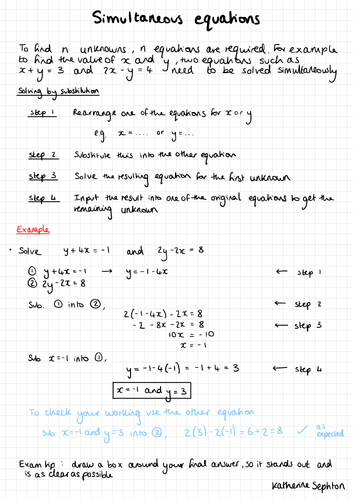 Simultaneous equations
To find n unknowns, n equations are required. For example
to find the value of x and y, two equations such as
x + y = 3 and 2x - y = 4 need to be solved simultaneously
Solving by substitution
Step 1 Rearrange one of the equations for x or y
eg. x = .... or y = ...
Step 2 Substitute this into the other equation
Step 3 Solve the resulting equation for the first unknown
Step 4 Input the result into one of the original equations to get the
remaining unknown
Example
• Solve y + 4x = -1 and 2y - 2x = 8
① y + 4x = -1 → y = -1 - 4x ← Step 1
② 2y - 2x = 8
Sub. ① into ②, ← Step 2
2(-1 - 4x) - 2x = 8
-2 - 8x - 2x = 8 ← Step 3
10x = -10
x = -1
Sub x = -1 into ①,
y = -1 - 4(-1) = -1 + 4 = 3 ← Step 4
x = -1 and y = 3
To check your working use the other equation
Sub x = -1 and y = 3 into ②, 2(3) - 2(-1) = 6 + 2 = 8 ✓ as expected
Exam tip : draw a box around your final answer, so it stands out and
is as clear as possible
Katherine Sephton